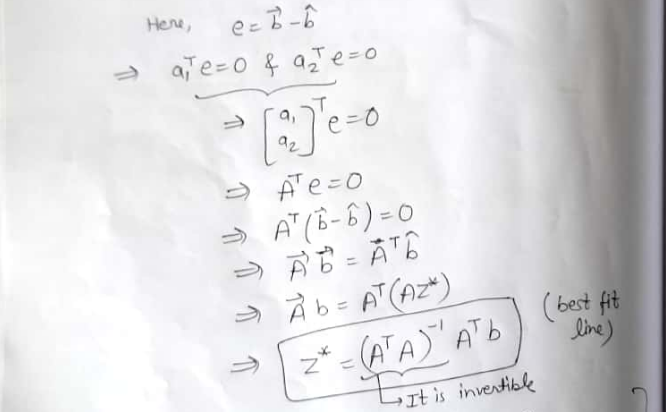 Here, e = b⃗ - b̂
⇒ a₁ᵀe=0 & a₂ᵀe=0
⇒ [a₁ a₂]ᵀ e=0
⇒ Aᵀe=0
⇒ Aᵀ(b⃗-b̂) = 0
⇒ A⃗ b⃗ = A⃗ᵀb̂
⇒ A⃗ b = Aᵀ(AZ*)
⇒ Z* = (AᵀA)⁻¹ Aᵀb (best fit line)
↳ It is invertible